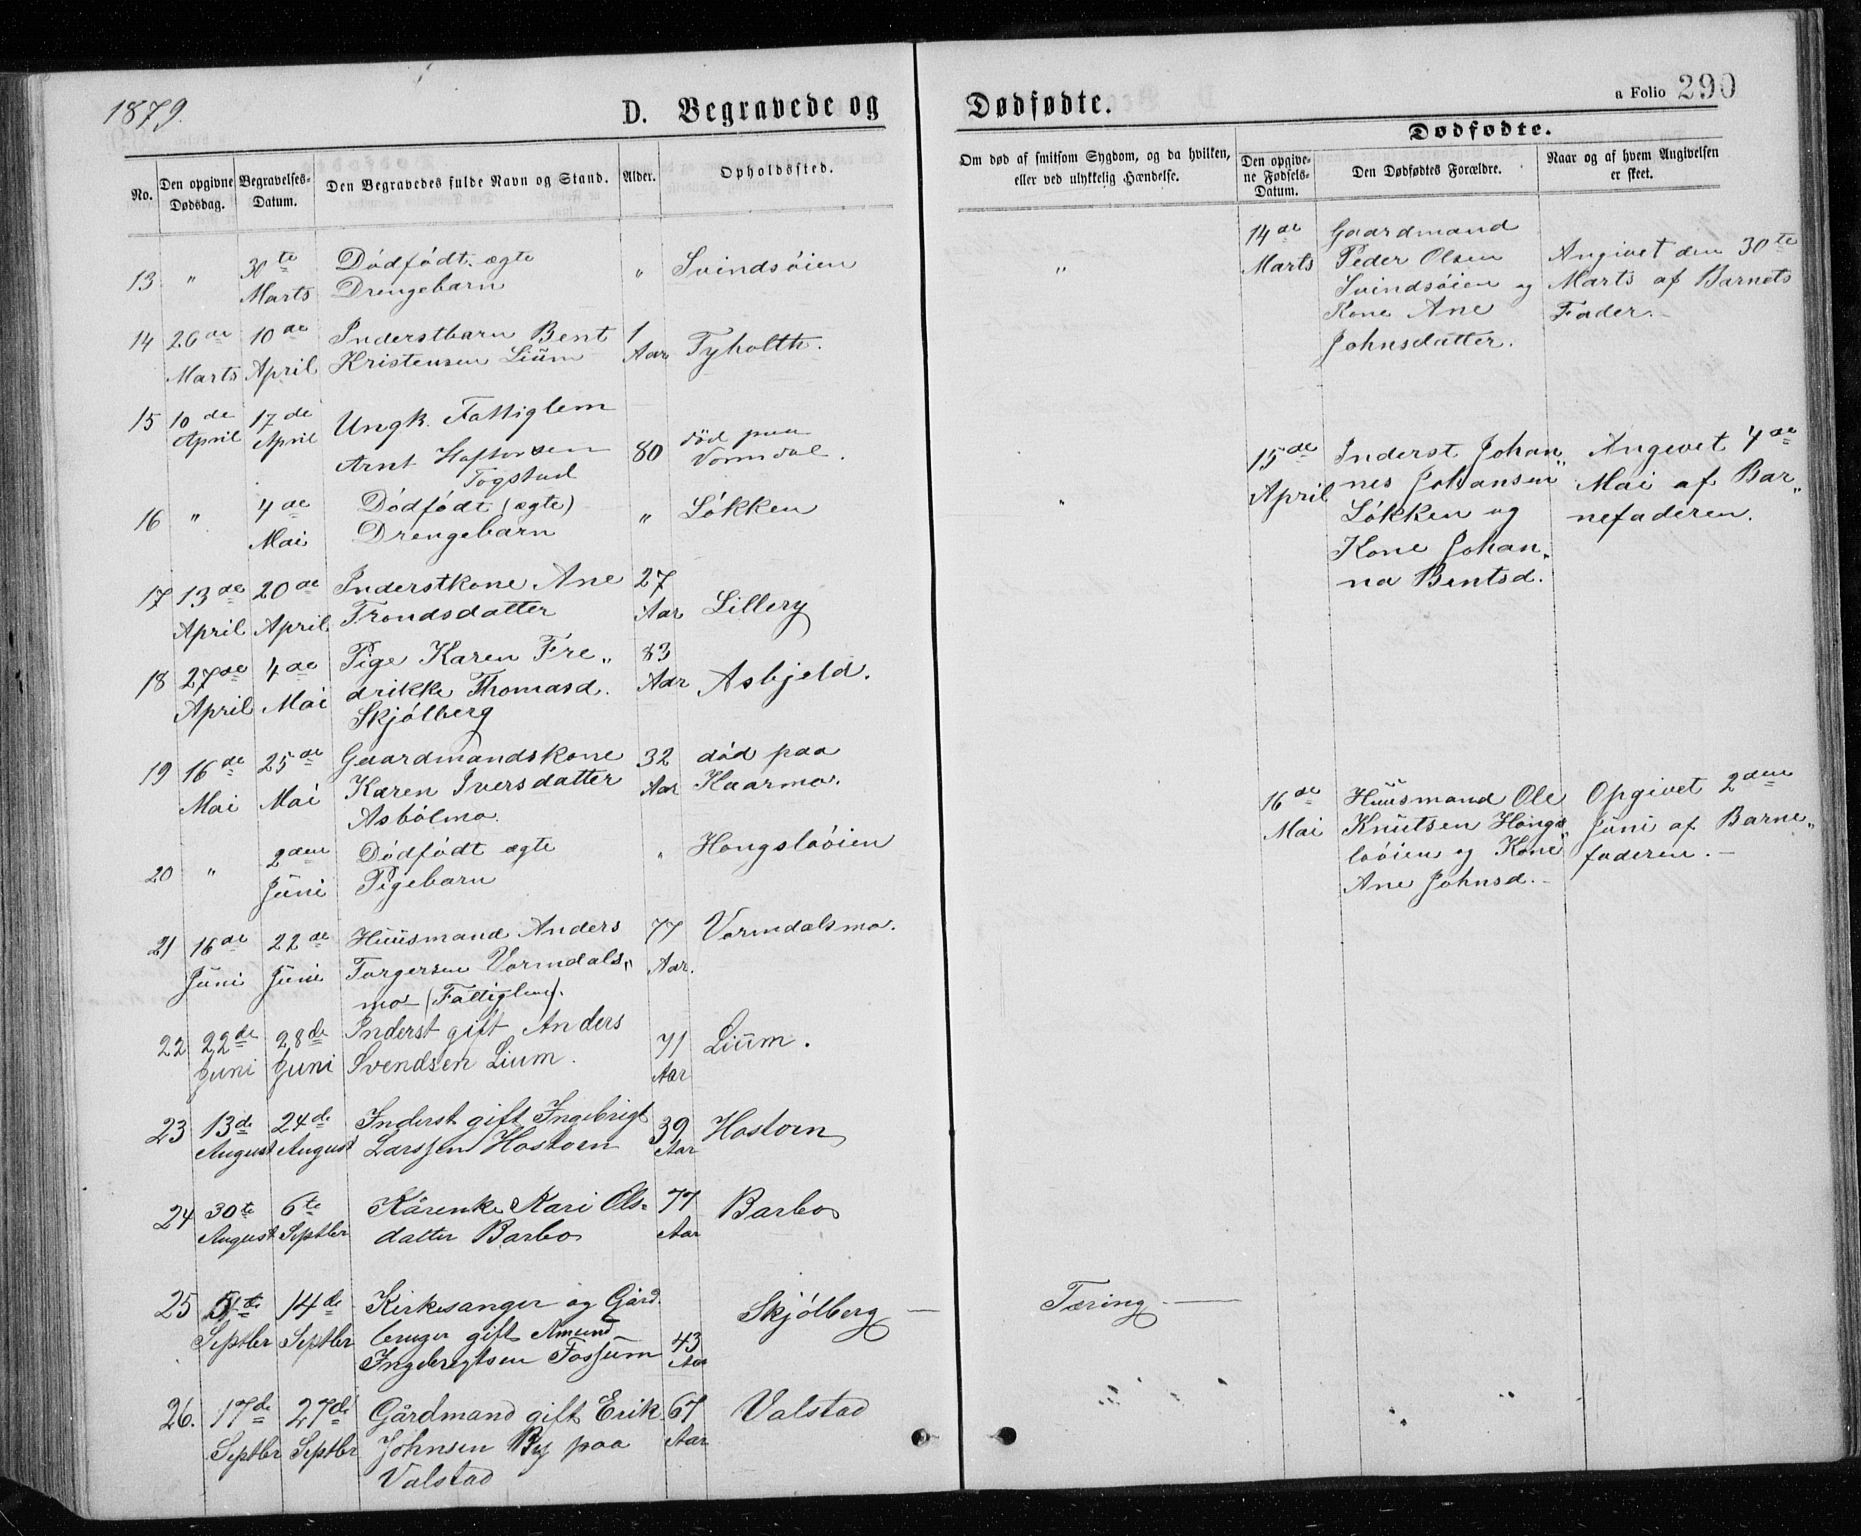 1879.
D. Begravede og
Dødfødte.
a Folio 290
Dødfødte.
No.
Den opgivne Dødsdag.
Begravelses-Datum.
Den Begravedes fulde Navn og Stand.
Alder.
Opholdssted.
Om død af smitsom Sygdom, og da hvilken,
eller ved ulykkelig Hændelse.
Den opgivene Fødsels-Datum.
Den Dødfødtes Forældre.
Naar og af hvem Angivelsen
er skeet.
13 " 30te Dødfødt ægte " Svindsøien
Marts Drengebarn
" 14de Gaardmand
Marts Peder Olsen Angivet den 30te
Svindsøien og Marts af Barnets
Kone Ane Fader.
Johnsdatter.
14 26de 10de Inderstbarn Bent 1 Tyholth.
Marts April Kristensen Lium Aar
15 10de 17de Ungk. Fattiglem
April April Arnt 80 død paa
Togstad Vormdal.
16 " 4de Dødfødt (ægte) " Løkken
Mai Drengebarn
" 15de Inderst Johan„ Angivet 4de
April nes Johansen Mai af Bar„
Løkken og nefaderen.
Kone Johan„
na Bentsd.
17 13de 20de Inderstkone Ane 27 Lillery
April April Trondsdatter Aar
18 27de 4de Pige Karen Fre„ 83 Asbjeld.
April Mai drikke Thomasd. Aar
Skjølberg
19 16de 25de Gaardmandskone 32 død paa
Mai Mai Karen Iversdatter Aar Haarmo.
Asbølmo.
20 " 2den Dødfødt ægte " Hongsløøien
Juni Pigebarn
16de Huusmand Ole Opgivet 2den
Mai Knutsen Hongs„ Juni af Barne„
løøien og Kone faderen.—
Ane Johnsd.—
21 16de 22de Huusmand Anders 77 Vormdalsmo.
Juni Juni Torgersen Vormdals„ Aar.
mo (Fattiglem).
22 22de 28de Inderst gift Anders 71 Lium.
Juni Juni Svendsen Lium. Aar
23 13de 24de Inderst gift Ingebrigt 39 Hostoen
August August Larssen Hostoen Aar
24 30te 6te Kårenke Kari Ols- 77 Barbo
August Septbr datter Barbo Aar
25 5te 14de Kirkesanger og Gård Skjølberg — Tæring. —
Septbr Septbr bruger gift Amund 43
Ingebregtsen Fossum Aar
26. 17de 27de Gårdmand gift Erik 67 Valstad
Septbr Septbr Johnsen By paa Aar
Valstad